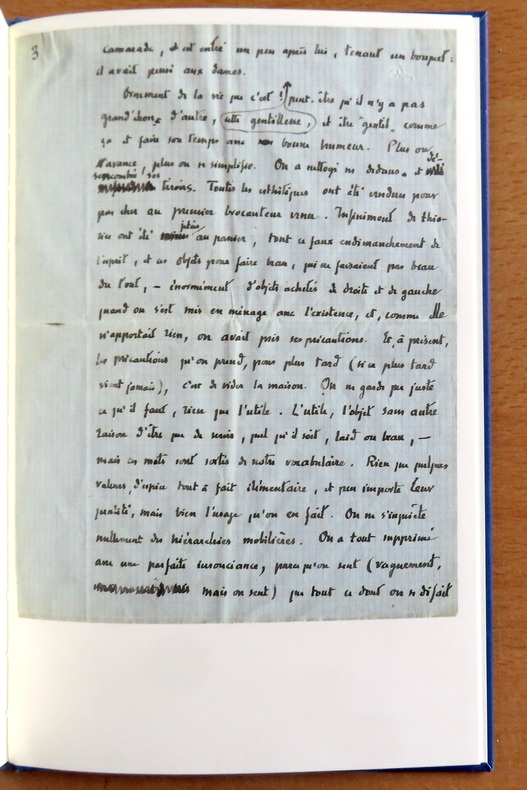 3
camarade, et est entré un peu après lui, tenant un bouquet :
il avait pensé aux dames.
Ornement de la vie que c'est ! peut-être qu'il n'y a pas
grand'chose d'autre, cette gentillesse, et être gentil, comme
ça et faire son temps avec bonne humeur. Plus on
avance, plus on se simplifie. On a nettoyé ses dedans, et
ses tiroirs. Toutes les esthétiques ont été vendues pour
pas cher au premier brocanteur venu. Infiniment de théo-
ries ont été jetées au panier, tout ce faux endimanchement de
l'esprit, et ces objets pour faire beau, qui ne faisaient pas beau
du tout, – énormément d'objets achetés de droite et de gauche
quand on s'est mis en ménage avec l'existence, et, comme elle
n'apportait rien, on avait pris ses précautions. Et, à présent,
les précautions qu'on prend, pour plus tard (si ce plus tard
vient jamais), c'est de vider la maison. On ne garde que juste
ce qu'il faut, rien que l'utile. L'utile, l'objet sans autre
raison d'être que de servir, quel qu'il soit, laid ou beau, –
mais ces mots sont sortis de notre vocabulaire. Rien que quelques
valeurs, d'espèce tout à fait élémentaire, et peu importe leur
qualité, mais bien l'usage qu'on en fait. On ne s'inquiète
nullement des hiérarchies mobilières. On a tout supprimé
avec une parfaite insouciance, parce qu'on sent (vaguement,
mais on sent) que tout ce dont on se défait